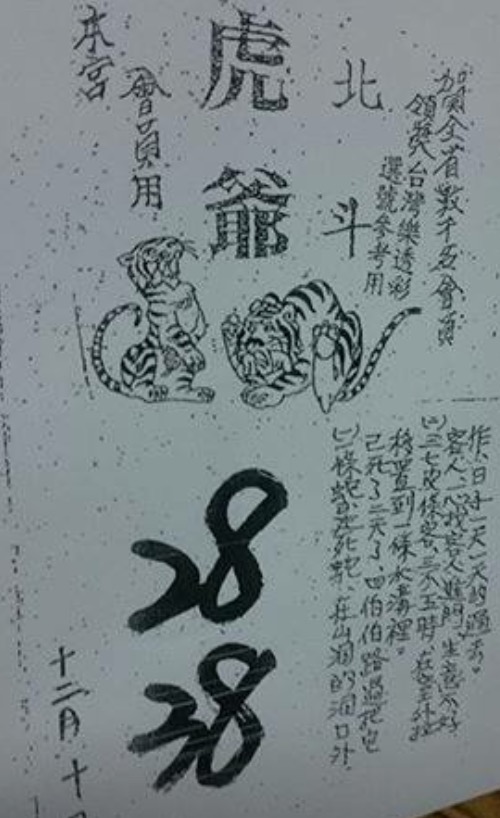 賀全省數千名會員
領獎台灣樂透彩
選號參考用
北斗
虎爺
會員用
本宮
作,日子一天一天的過去。
客人,
找客人進門,生意不好
三七皮條客,三不五時,在
移置到一條水溝裡。
己死了三天了,四伯伯路過把它
一條蛇,死蛇,在山洞的洞口外
28
38
十二月十